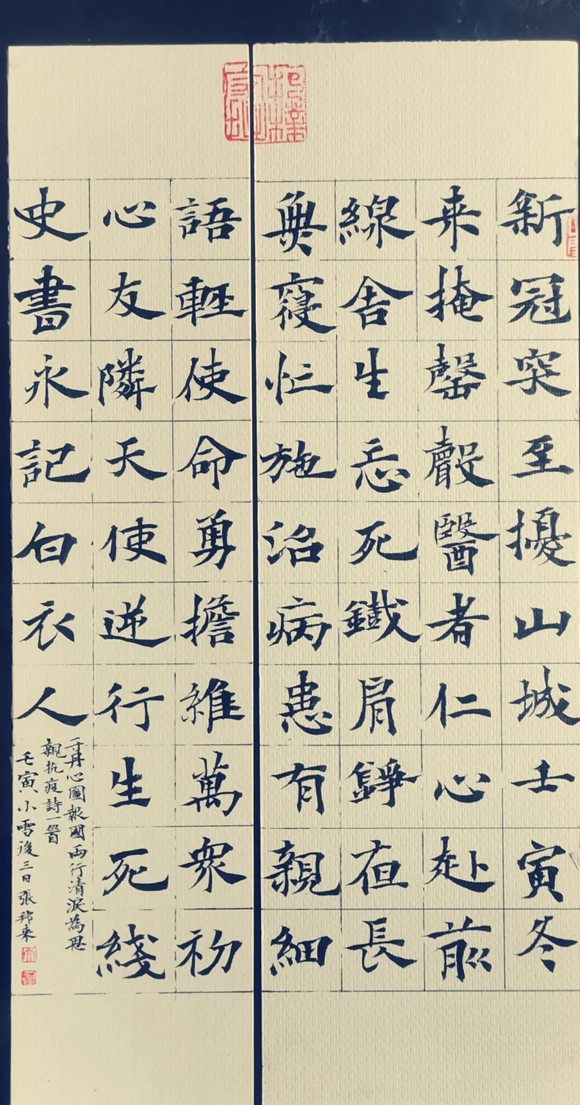 新冠突至擾山城壬寅冬
来掩罄醫者仁心赴前
線舍生忘死鐵肩錚夜長
無寢忙施治病患有親細
語輕使命勇擔維萬衆初
心友隣天使逆行生死綫
史書永記白衣人
一寸丹心圖報國兩行清淚為思
親抗疫詩一首
壬寅小雪後三日張邦